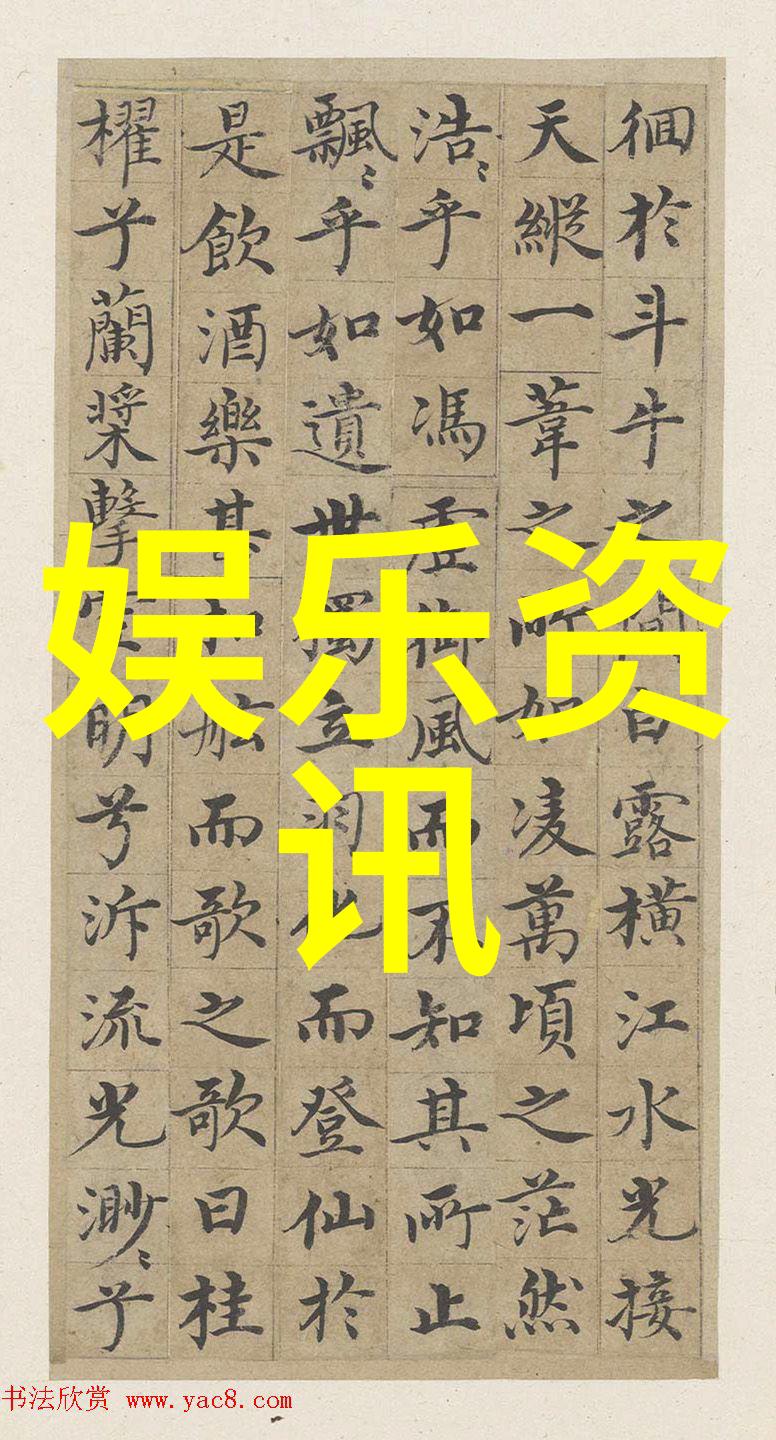 徊於斗牛之間白露橫江水光接
天縱一葦之所如凌萬頃之茫然
浩〻乎如馮虛御風而不知其所止
飄〻乎如遺世獨立羽化而登仙於
是飲酒樂甚扣舷而歌之歌曰桂
櫂兮蘭槳擊空明兮泝流光渺〻兮
娱乐资
讯
书法欣赏 www.yac8.com